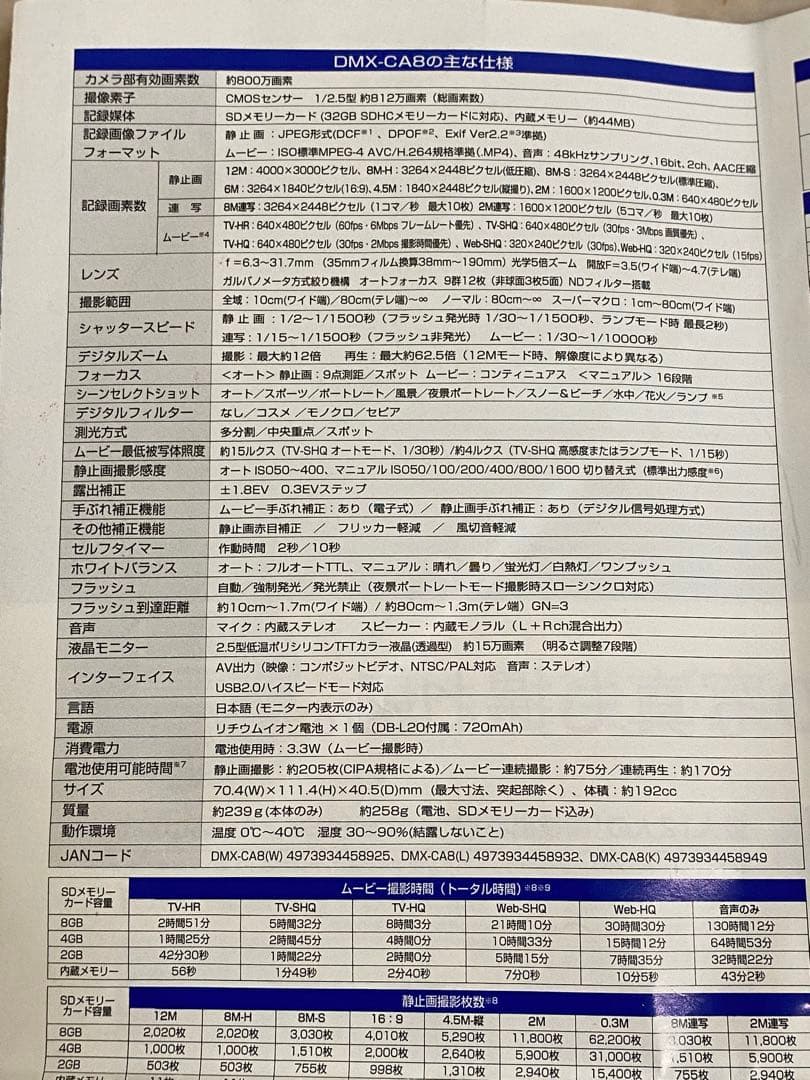 DMX-CA8の主な仕様
カメラ部有効画素数 約800万画素
撮像素子 CMOSセンサー 1/2.5型 約812万画素（総画素数）
記録媒体 SDメモリーカード（32GB SDHCメモリーカードに対応）、内蔵メモリー（約44MB）
記録画像ファイル 静止画：JPEG形式(DCF※1、DPOF※2、Exif Ver2.2※3準拠)
フォーマット ムービー：ISO標準MPEG-4 AVC/H.264規格準拠(.MP4)、音声：48kHzサンプリング、16bit、2ch、AAC圧縮
記録画素数 静止画 12M：4000×3000ピクセル、8M-H：3264×2448ピクセル(低圧縮)、8M-S：3264×2448ピクセル(標準圧縮)、
6M：3264×1840ピクセル(16:9)、4.5M：1840×2448ピクセル(縦撮り)、2M：1600×1200ピクセル、0.3M：640×480ピクセル
連写 8M連写：3264×2448ピクセル（1コマ／秒 最大10枚）2M連写：1600×1200ピクセル（5コマ／秒 最大10枚）
ムービー※4 TV-HR：640×480ピクセル（60fps・6Mbps フレームレート優先）、TV-SHQ：640×480ピクセル（30fps・3Mbps 画質優先）、
TV-HQ：640×480ピクセル（30fps・2Mbps 撮影時間優先）、Web-SHQ：320×240ピクセル（30fps）、Web-HQ：320×240ピクセル（15fps）
レンズ f=6.3～31.7mm（35mmフィルム換算38mm～190mm）光学5倍ズーム 開放F=3.5(ワイド端)～4.7(テレ端)
ガルバノメータ方式絞り機構 オートフォーカス 9群12枚（非球面3枚5面）NDフィルター搭載
撮影範囲 全域：10cm(ワイド端)/80cm(テレ端)～∞ ノーマル：80cm～∞ スーパーマクロ：1cm～80cm(ワイド端)
シャッタースピード 静止画：1/2～1/1500秒（フラッシュ発光時 1/30～1/1500秒、ランプモード時 最長2秒）
連写：1/15～1/1500秒（フラッシュ非発光） ムービー：1/30～1/10000秒
デジタルズーム 撮影：最大約12倍 再生：最大約62.5倍（12Mモード時、解像度により異なる）
フォーカス ＜オート＞静止画：9点測距／スポット ムービー：コンティニュアス ＜マニュアル＞16段階
シーンセレクトショット オート／スポーツ／ポートレート／風景／夜景ポートレート／スノー＆ビーチ／水中／花火／ランプ※5
デジタルフィルター なし／コスメ／モノクロ／セピア
測光方式 多分割／中央重点／スポット
ムービー最低被写体照度 約15ルクス（TV-SHQ オートモード、1/30秒）/約4ルクス（TV-SHQ 高感度またはランプモード、1/15秒）
静止画撮影感度 オート ISO50～400、マニュアル ISO50/100/200/400/800/1600 切り替え式（標準出力感度※6）
露出補正 ±1.8EV 0.3EVステップ
手ぶれ補正機能 ムービー手ぶれ補正：あり（電子式）／ 静止画手ぶれ補正：あり（デジタル信号処理方式）
その他補正機能 静止画赤目補正 ／ フリッカー軽減 ／ 風切音軽減
セルフタイマー 作動時間 2秒／10秒
ホワイトバランス オート：フルオートTTL、マニュアル：晴れ／曇り／蛍光灯／白熱灯／ワンプッシュ
フラッシュ 自動／強制発光／発光禁止（夜景ポートレートモード撮影時スローシンクロ対応）
フラッシュ到達距離 約10cm～1.7m(ワイド端）/ 約80cm～1.3m(テレ端）GN=3
音声 マイク：内蔵ステレオ スピーカー：内蔵モノラル（L＋Rch混合出力）
液晶モニター 2.5型低温ポリシリコンTFTカラー液晶(透過型) 約15万画素 （明るさ調整7段階）
インターフェイス AV出力（映像：コンポジットビデオ、NTSC/PAL対応 音声：ステレオ）
USB2.0ハイスピードモード対応
言語 日本語（モニター内表示のみ）
電源 リチウムイオン電池×1個（DB-L20付属：720mAh）
消費電力 電池使用時：3.3W（ムービー撮影時）
電池使用可能時間※7 静止画撮影：約205枚(CIPA規格による)／ムービー連続撮影：約75分／連続再生：約170分
サイズ 70.4(W)×111.4(H)×40.5(D)mm（最大寸法、突起部除く）、体積：約192cc
質量 約239g(本体のみ) 約258g（電池、SDメモリーカード込み）
動作環境 温度 0℃～40℃ 湿度 30～90%(結露しないこと)
JANコード DMX-CA8(W) 4973934458925、DMX-CA8(L) 4973934458932、DMX-CA8(K) 4973934458949
SDメモリーカード容量 ムービー撮影時間（トータル時間）※8※9
TV-HR TV-SHQ TV-HQ Web-SHQ Web-HQ 音声のみ
8GB 2時間51分 5時間32分 8時間3分 21時間10分 30時間30分 130時間12分
4GB 1時間25分 2時間45分 4時間0分 10時間33分 15時間12分 64時間53分
2GB 42分30秒 1時間22分 2時間0分 5時間15分 7時間35分 32時間22分
内蔵メモリー 56秒 1分49秒 2分40秒 7分0秒 10分5秒 43分2秒
SDメモリーカード容量 静止画撮影枚数※8
12M 8M-H 8M-S 16：9 4.5M-縦 2M 0.3M 8M連写 2M連写
8GB 2,020枚 2,020枚 3,030枚 4,010枚 5,290枚 11,800枚 62,200枚 3,030枚 11,800枚
4GB 1,000枚 1,000枚 1,510枚 2,000枚 2,640枚 5,900枚 31,000枚 1,510枚 5,900枚
2GB 503枚 503枚 755枚 998枚 1,310枚 2,940枚 15,400枚 755枚 2,940枚